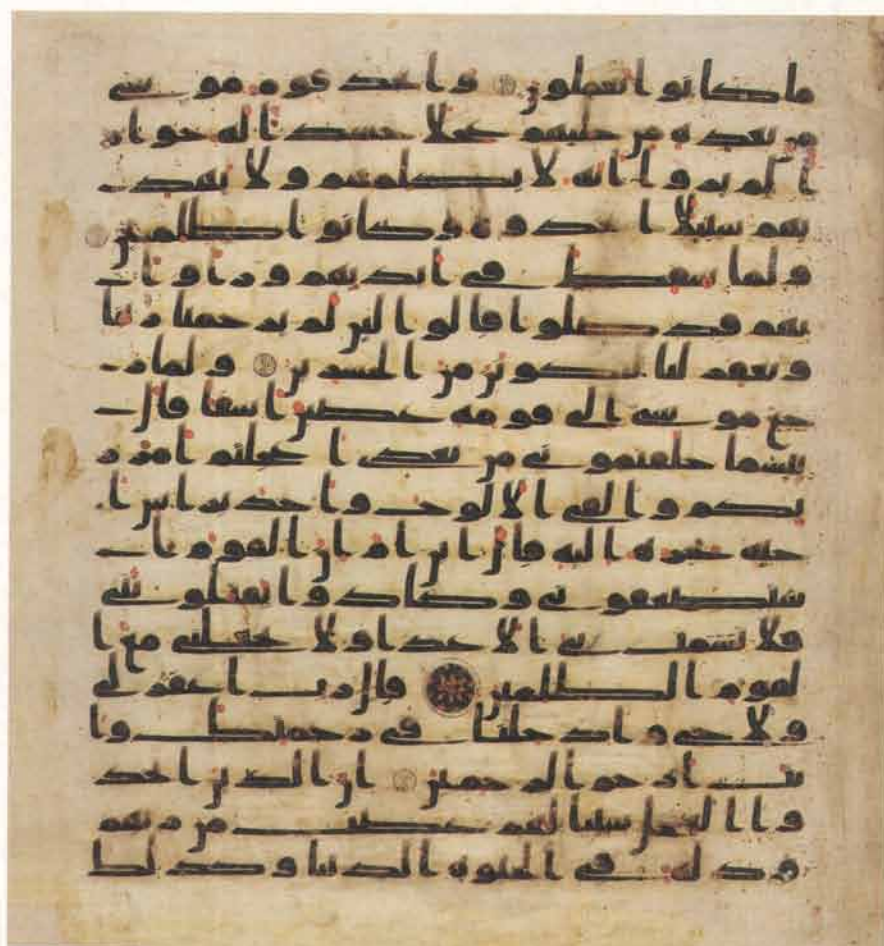 ما كانوا يعملون واتخذ قوم موسى
من بعده من حليهم عجلا جسدا له خوار
الم يروا انه لا يكلمهم ولا يهد
يهم سبيلا اتخذوه وكانوا ظلمين
ولما سقط في ايديهم وراوا ا
نهم قد ضلوا قالوا لين لم يرحمنا ربنا
ويغفر لنا لنكونن من الخسرين ولما ر
جع موسى الى قومه غضبن اسفا قال
بيسما خلفتموني من بعدي اعجلتم امر ر
بكم والقى الالوح واخذ براس ا
خيه يجره اليه قال ابن ام ان القوم ا
ستضعفوني وكادوا يقتلونني
فلا تشمت بي الاعدا ولا تجعلني مع ا
لقوم الظلمين قال رب اغفر لي
ولاخي وادخلنا في رحمتك وا
نت ارحم الرحمين ان الذين اتخذ
وا العجل سينالهم غضب من ربهم
وذلة في الحيوة الدنيا وكذلك